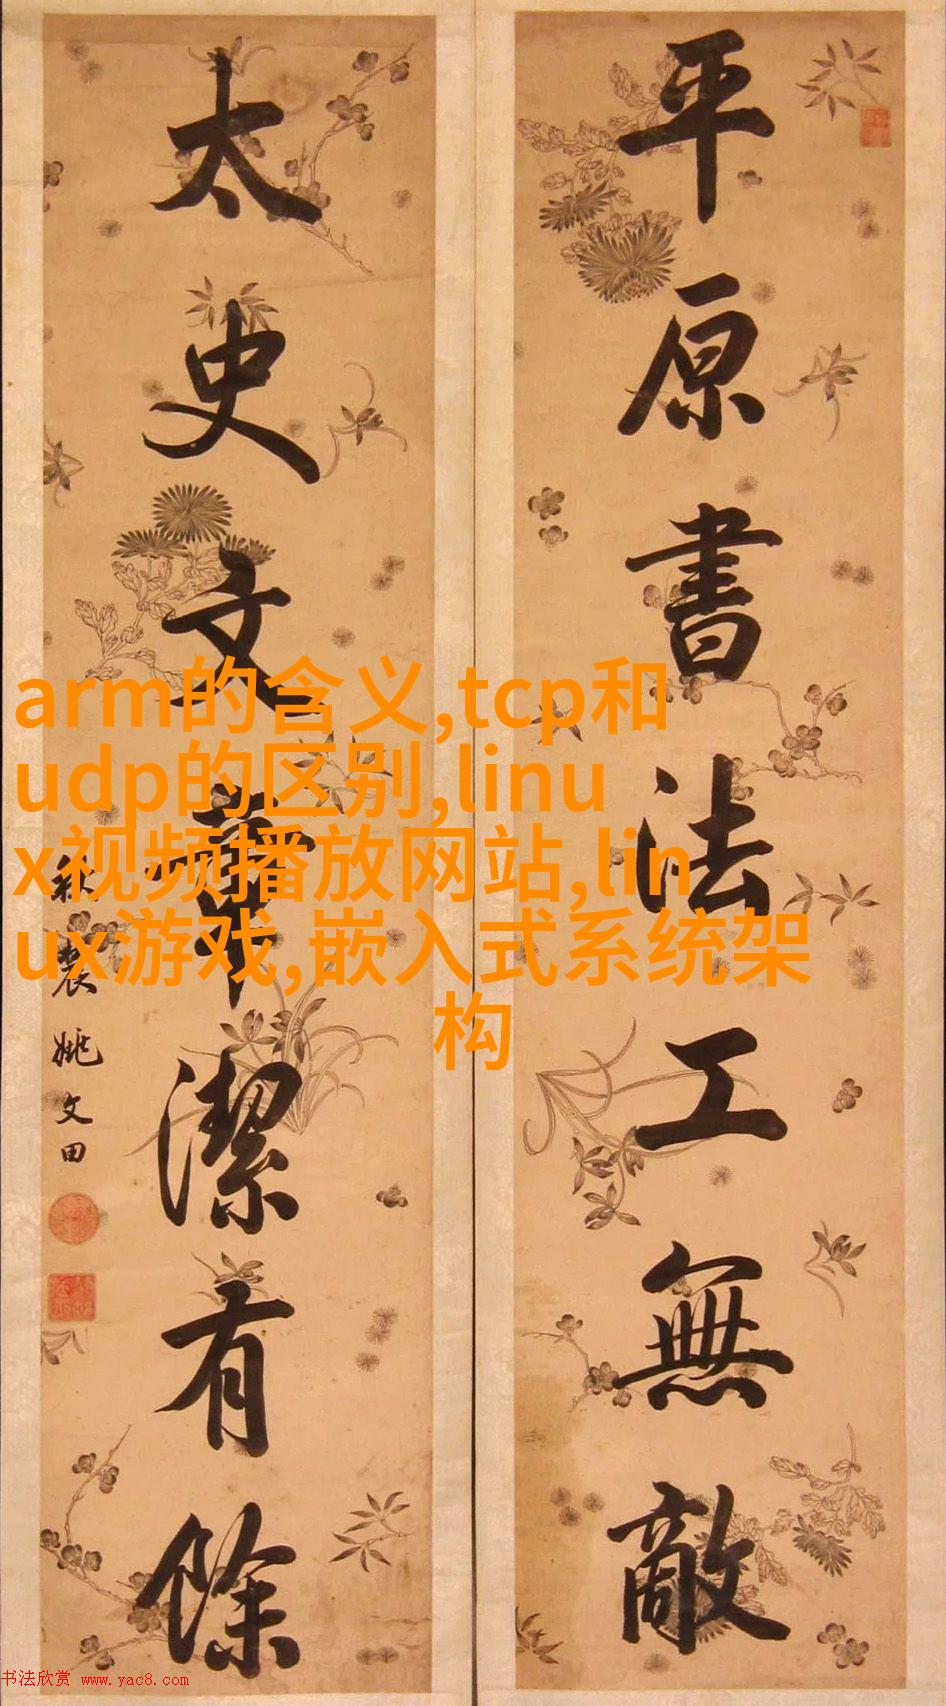 平原書法工無敵
太史文章潔有餘
秋農姚文田
arm的含义,tcp和
udp的区别,linu
x视频播放网站,lin
ux游戏,嵌入式系统架
构
书法欣赏 www.yac8.com